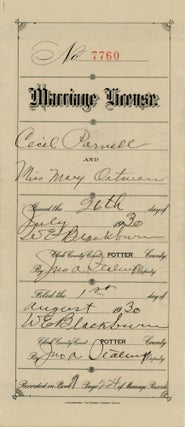 No 7760
Marriage License
Cecil Parnell
AND
Miss Mary Oatman
Issued the 26th day of
July 1930
W E Blackburn
Clerk County Court POTTER County
By Jno A Deputy
Filed the 1st day of
August 1930
W E Blackburn
Clerk County Court POTTER County
By Jno A Deputy
Recorded in Book Page of Marriage Records